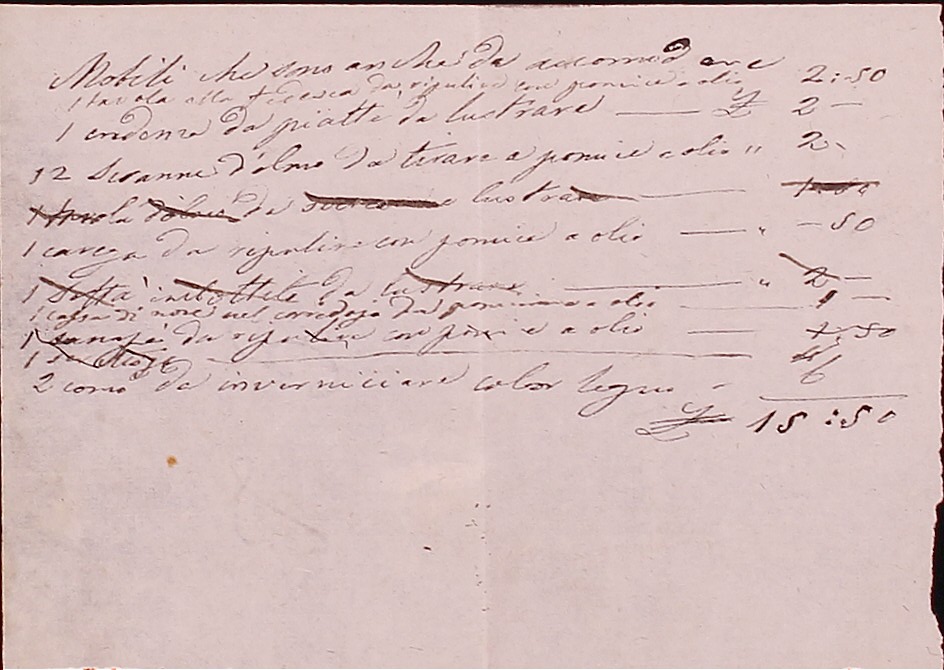 Mobili che sono anche da accomodare
1 tavola alla tedesca da ripulire con pomice e olio 2:50
1 credenza da piatti da lustrare £ 2 —
12 Scranne d'olmo da tirare a pomice e olio " 2 -
1 tavola d'olmo da e lustrare
1 carega da ripulire con pomice e olio " — 50
1 Soffà imbottito da lustrare " 2 —
1 cassa di nose nel corridojo da pomiciare e olio 1 —
1 canapè da ripulire con pomice e olio 1:50
1
2 comò da inverniciare color legno - 6
£ 15:50